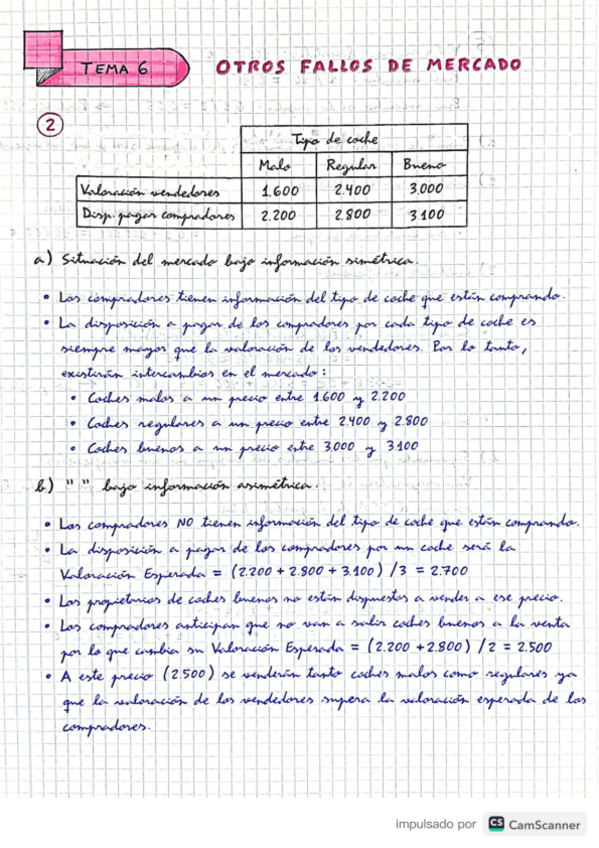 TEMA 6
OTROS FALLOS DE MERCADO
2
Tipo de coche
Malo Regular Bueno
Valoración vendedores 1.600 2.400 3.000
Disp. pagar compradores 2.200 2.800 3.100
a) Situación del mercado bajo información simétrica.
• Los compradores tienen información del tipo de coche que están comprando.
• La disposición a pagar de los compradores por cada tipo de coche es
siempre mayor que la valoración de los vendedores. Por lo tanto,
existirán intercambios en el mercado:
• Coches malos a un precio entre 1.600 y 2.200
• Coches regulares a un precio entre 2.400 y 2.800
• Coches buenos a un precio entre 3.000 y 3.100
b) " " bajo información asimétrica.
• Los compradores NO tienen información del tipo de coche que están comprando.
• La disposición a pagar de los compradores por un coche será la
Valoración Esperada = (2.200 + 2.800 + 3.100) /3 = 2.700
• Los propietarios de coches buenos no están dispuestos a vender a ese precio.
• Los compradores anticipan que no van a salir coches buenos a la venta
por lo que cambia su Valoración Esperada = (2.200 + 2.800) /2 = 2.500
• A este precio (2.500) se venderán tanto coches malos como regulares ya
que la valoración de los vendedores supera la valoración esperada de los
compradores.
impulsado por CS CamScanner